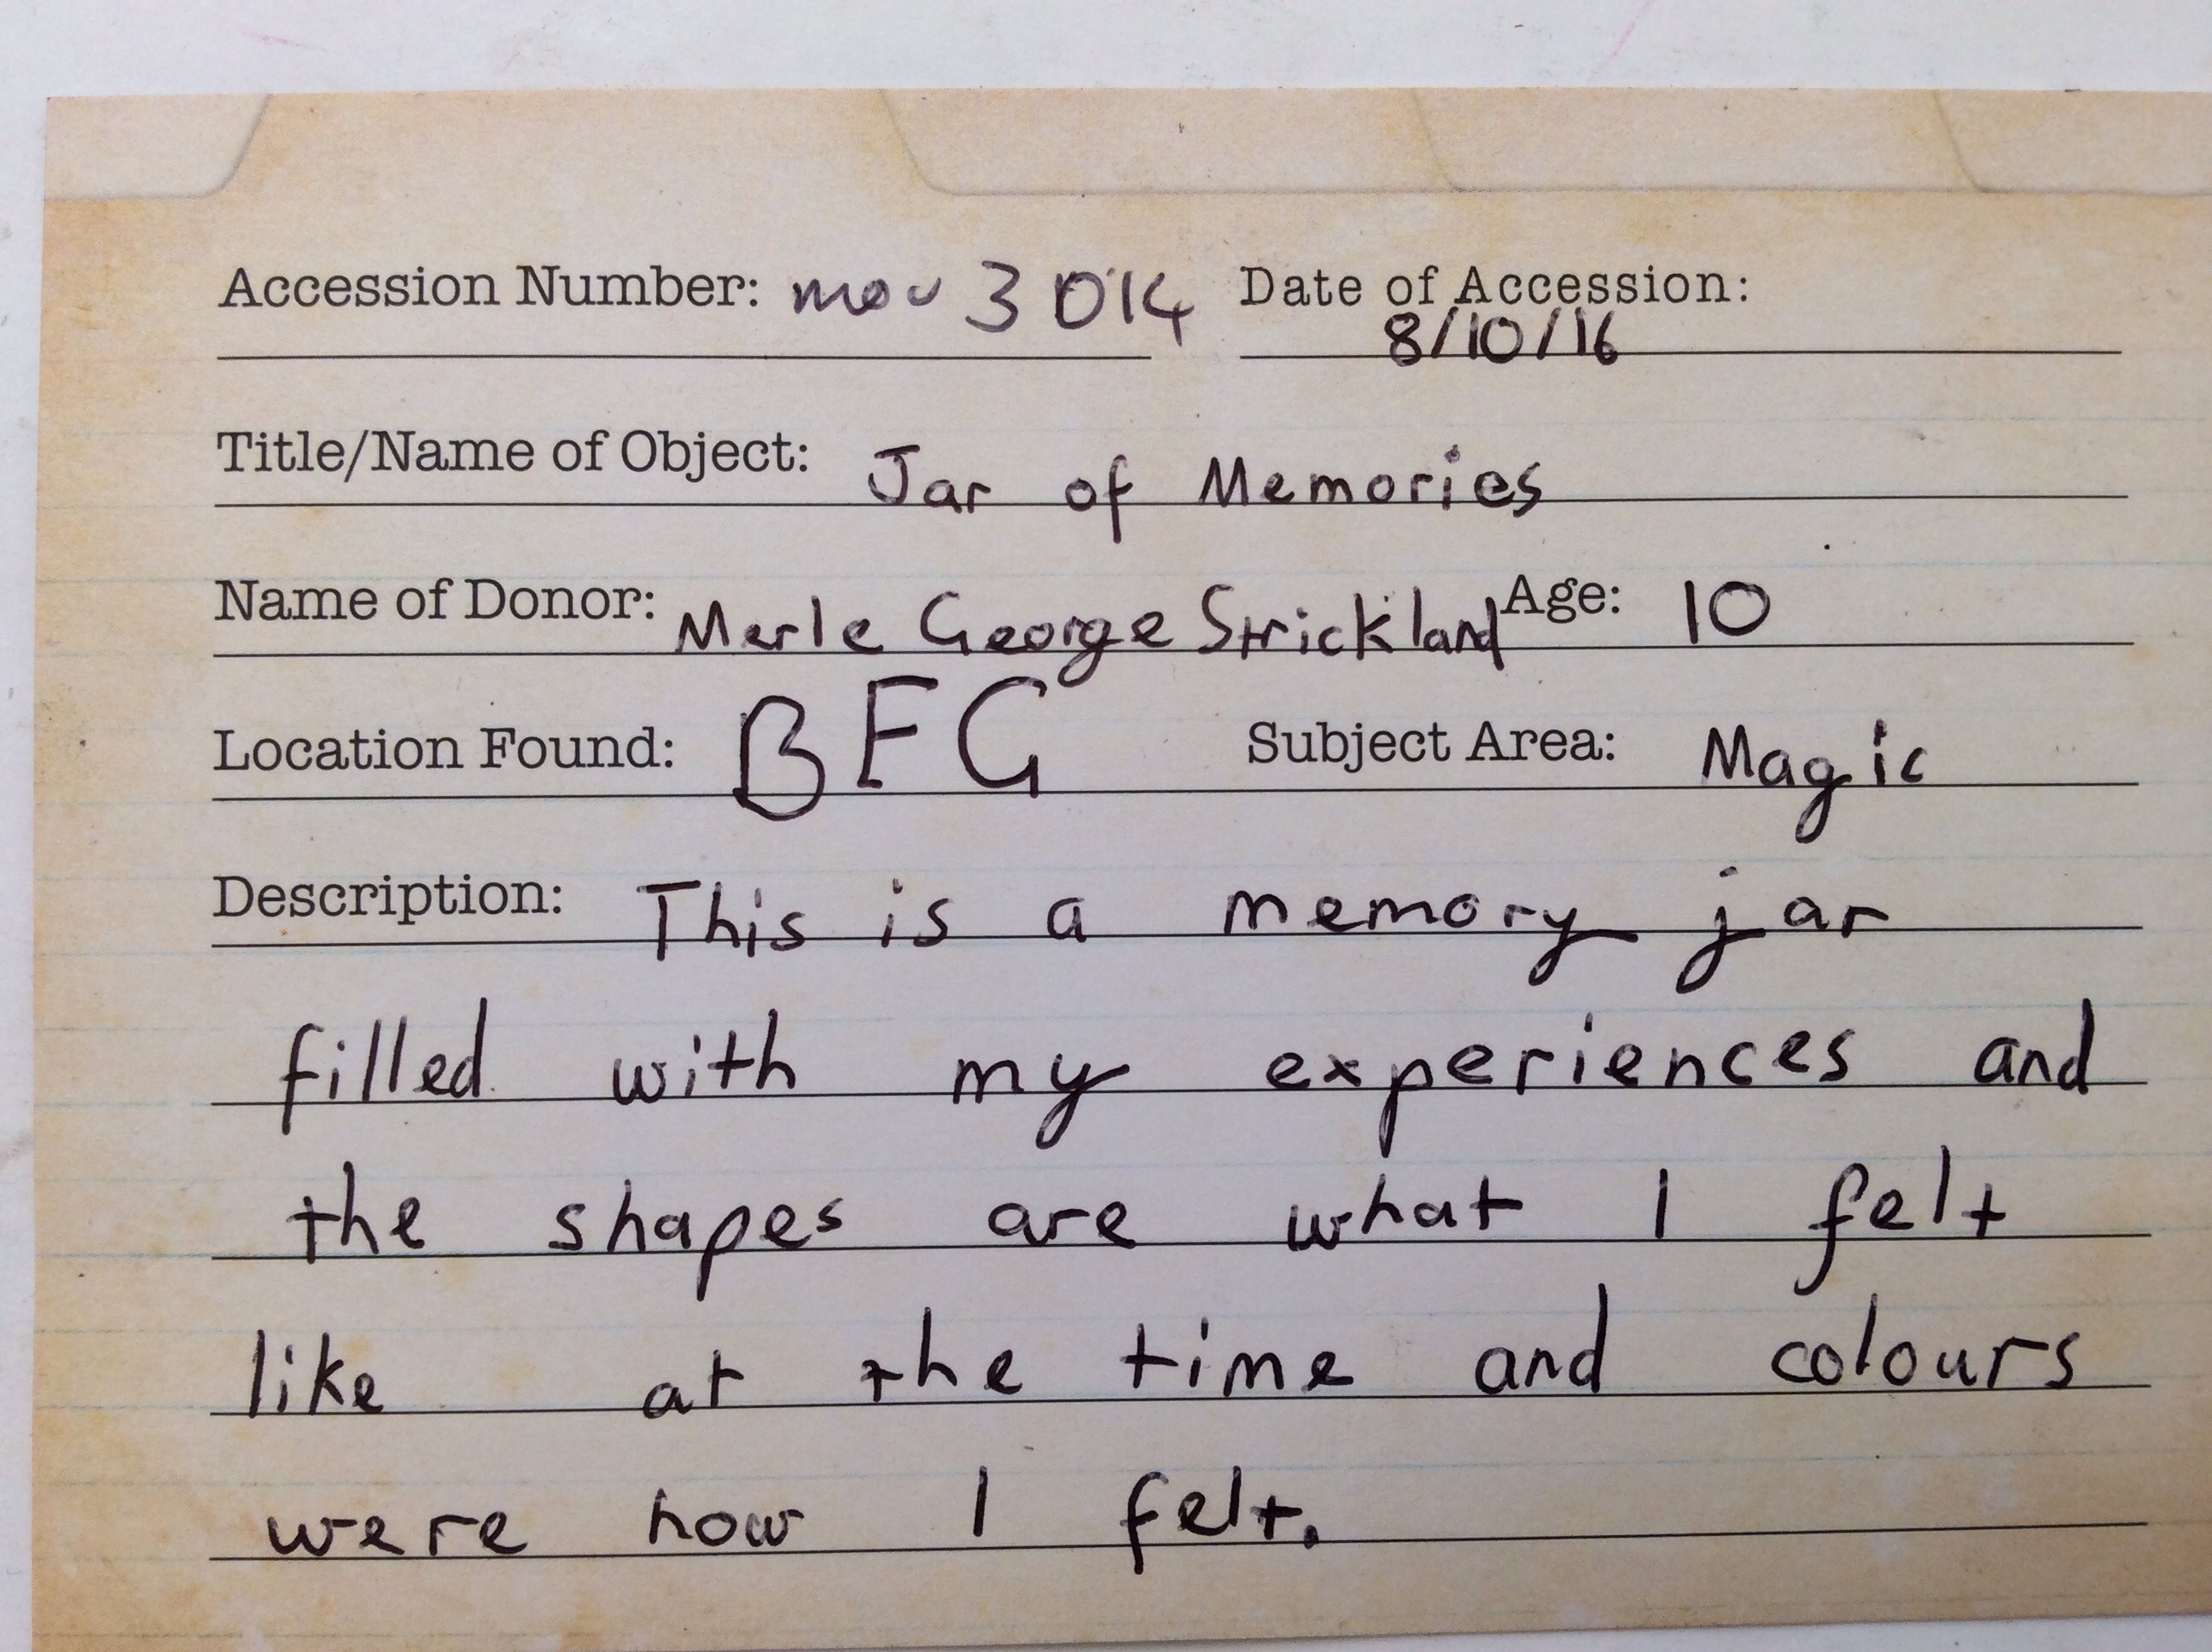 Accession Number: mou 3014 Date of Accession:
8/10/16
Title/Name of Object: Jar of Memories
Name of Donor: Merle George Strickland Age: 10
Location Found: BFG Subject Area: Magic
Description: This is a memory jar
filled with my experiences and
the shapes are what I felt
like at the time and colours
were how I felt.